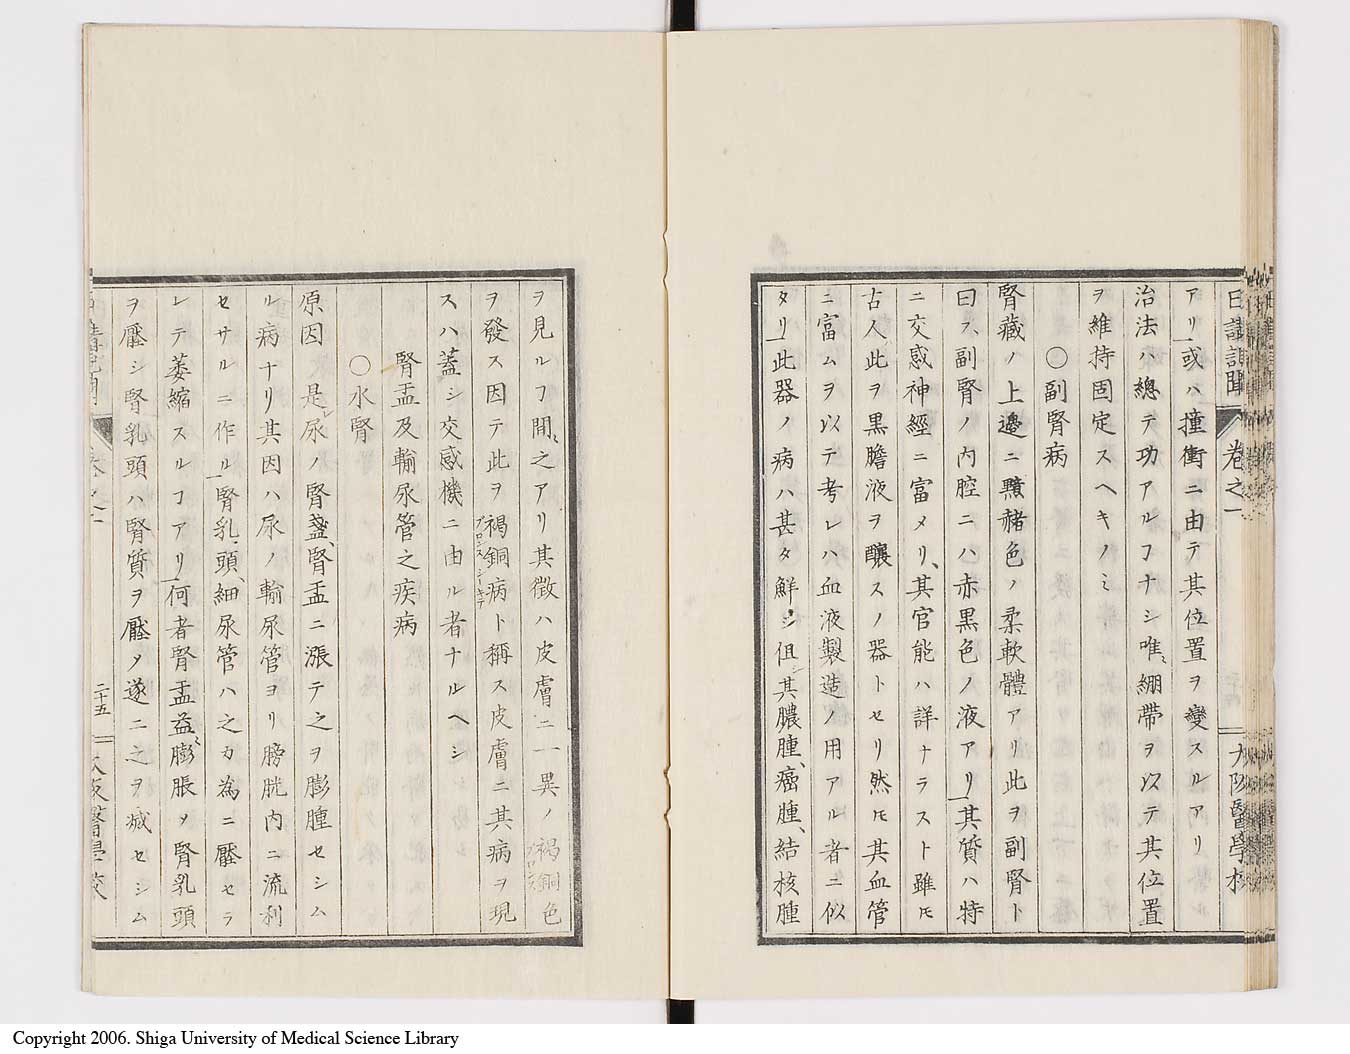 日講記聞 卷之一 大阪醫學校
アリ或ハ撞衝ニ由テ其位置ヲ變スルアリ
治法ハ總テ功アルヿナシ唯〻繃帶ヲ以テ其位置
ヲ維持固定スヘキノミ
○副腎病
腎藏ノ上邊ニ黯赭色ノ柔軟體アリ此ヲ副腎ト
曰フ、副腎ノ内腔ニハ赤黒色ノ液アリ其質ハ特
ニ交感神經ニ富メリ、其官能ハ詳ナラスト雖ㇳモ
古人此ヲ黒膽液ヲ釀スノ器トセリ然ㇳモ其血管
ニ富ムヲ以テ考レハ血液製造ノ用アル者ニ似
タリ此器ノ病ハ甚タ鮮シ但シ其膿腫、癌腫、結核腫
ヲ見ルヿ間〻之アリ其徴ハ皮膚ニ一異ノ褐銅色
ヲ發ス因テ此ヲ褐銅病ト稱ス皮膚ニ其病ヲ現
ブロンスシーキテ
スハ蓋シ交感機ニ由ル者ナルヘシ
腎盂及輸尿管之疾病
○水腎
原因 是レ尿ノ腎盞、腎盂ニ漲テ之ヲ膨腫セシム
ル病ナリ其因ハ尿ノ輸尿管ヨリ膀胱内ニ流利
セサルニ作ル腎乳頭、細尿管ハ之カ為ニ壓セラ
レテ萎縮スルヿアリ何者腎盂益〻膨脹メ腎乳頭
ヲ壓シ腎乳頭ハ腎質ヲ壓メ遂ニ之ヲ減セシム
二十五 大阪醫學校
Copyright 2006. Shiga University of Medical Science Library